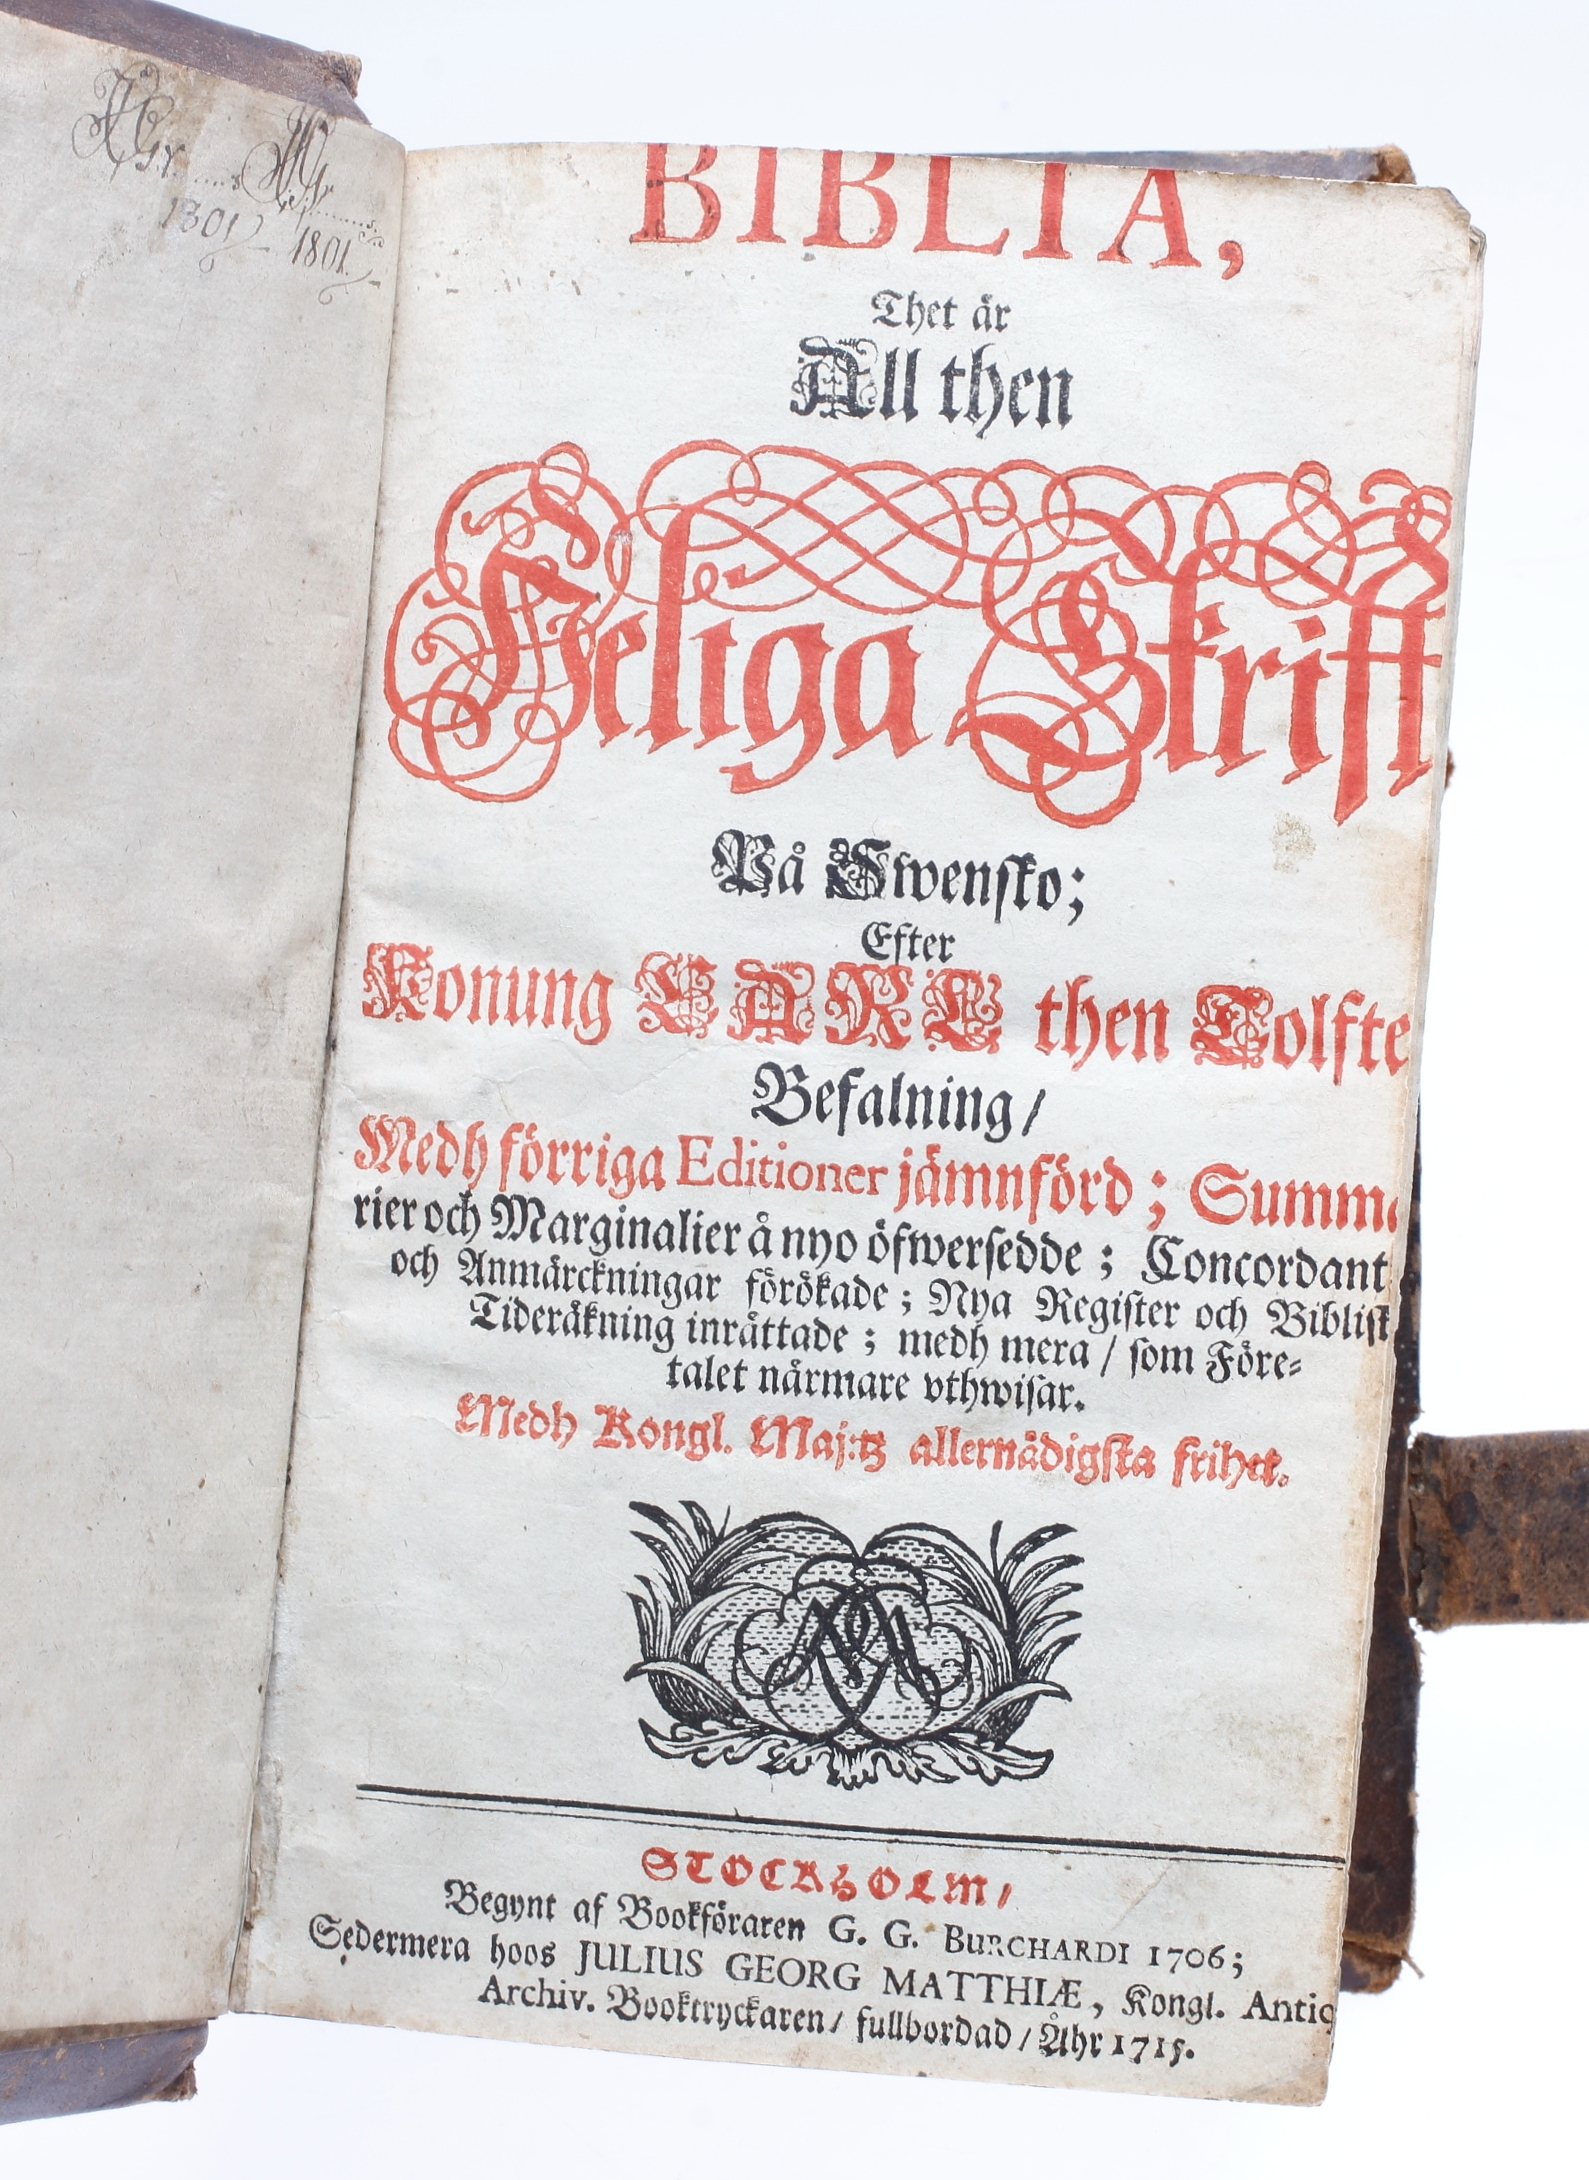 1801
1801
BIBLIA,
Thet är
All then
Heliga Skrift
På Swensko;
Efter
Konung CARL then Tolfte
Befalning/
Medh förriga Editioner jämnförd; Summa
rier och Marginalier å nyo öfwersedde; Concordant
och Anmärckningar förökade; Nya Register och Biblisk
Tideräkning inrättade; medh mera / som Före-
talet närmare vthwisar.
Medh Kongl. Maj:tz allernådigsta frihet.
STOCKHOLM/
Begynt af Bookföraren G. G. BURCHARDI 1706;
Sedermera hoos JULIUS GEORG MATTHIÆ, Kongl. Antiq
Archiv. Booktryckaren/ fullbordad/ Åhr 1715.